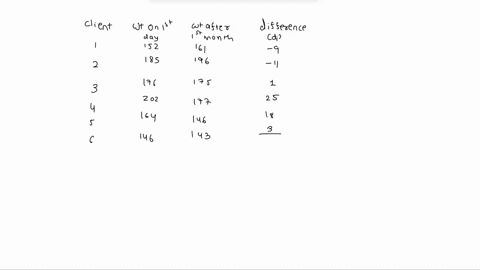 Client wt on 1st day wt after 1st month difference (di)
1 152 161 -9
2 185 196 -11
3 176 175 1
4 202 177 25
5 164 146 18
6 146 143 3